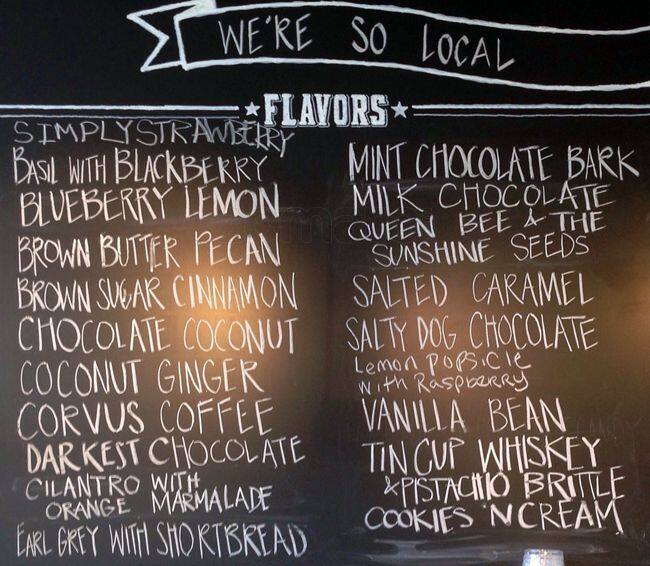 WE'RE SO LOCAL
FLAVORS
SIMPLY STRAWBERRY
BASIL WITH BLACKBERRY
BLUEBERRY LEMON
BROWN BUTTER PECAN
BROWN SUGAR CINNAMON
CHOCOLATE COCONUT
COCONUT GINGER
CORVUS COFFEE
DARKEST CHOCOLATE
CILANTRO WITH
ORANGE MARMALADE
EARL GREY WITH SHORTBREAD
MINT CHOCOLATE BARK
MILK CHOCOLATE
QUEEN BEE & THE
SUNSHINE SEEDS
SALTED CARAMEL
SALTY DOG CHOCOLATE
Lemon Popsicle
with Raspberry
VANILLA BEAN
TIN CUP WHISKEY
& PISTACHIO BRITTLE
COOKIES N CREAM